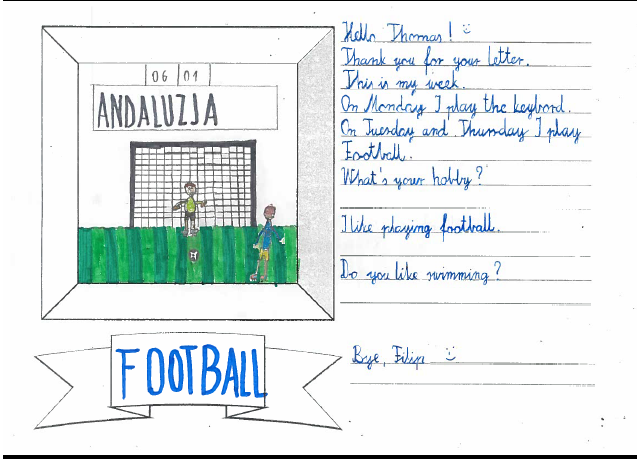 06 01
ANDALUZJA
FOOTBALL
Hello Thomas! :)
Thank you for your letter.
This is my week.
On Monday I play the keybord.
On Tuesday and Thursday I play
Football.
What's your hobby?
I like playing football.
Do you like swimming?
Bye, Filip :)